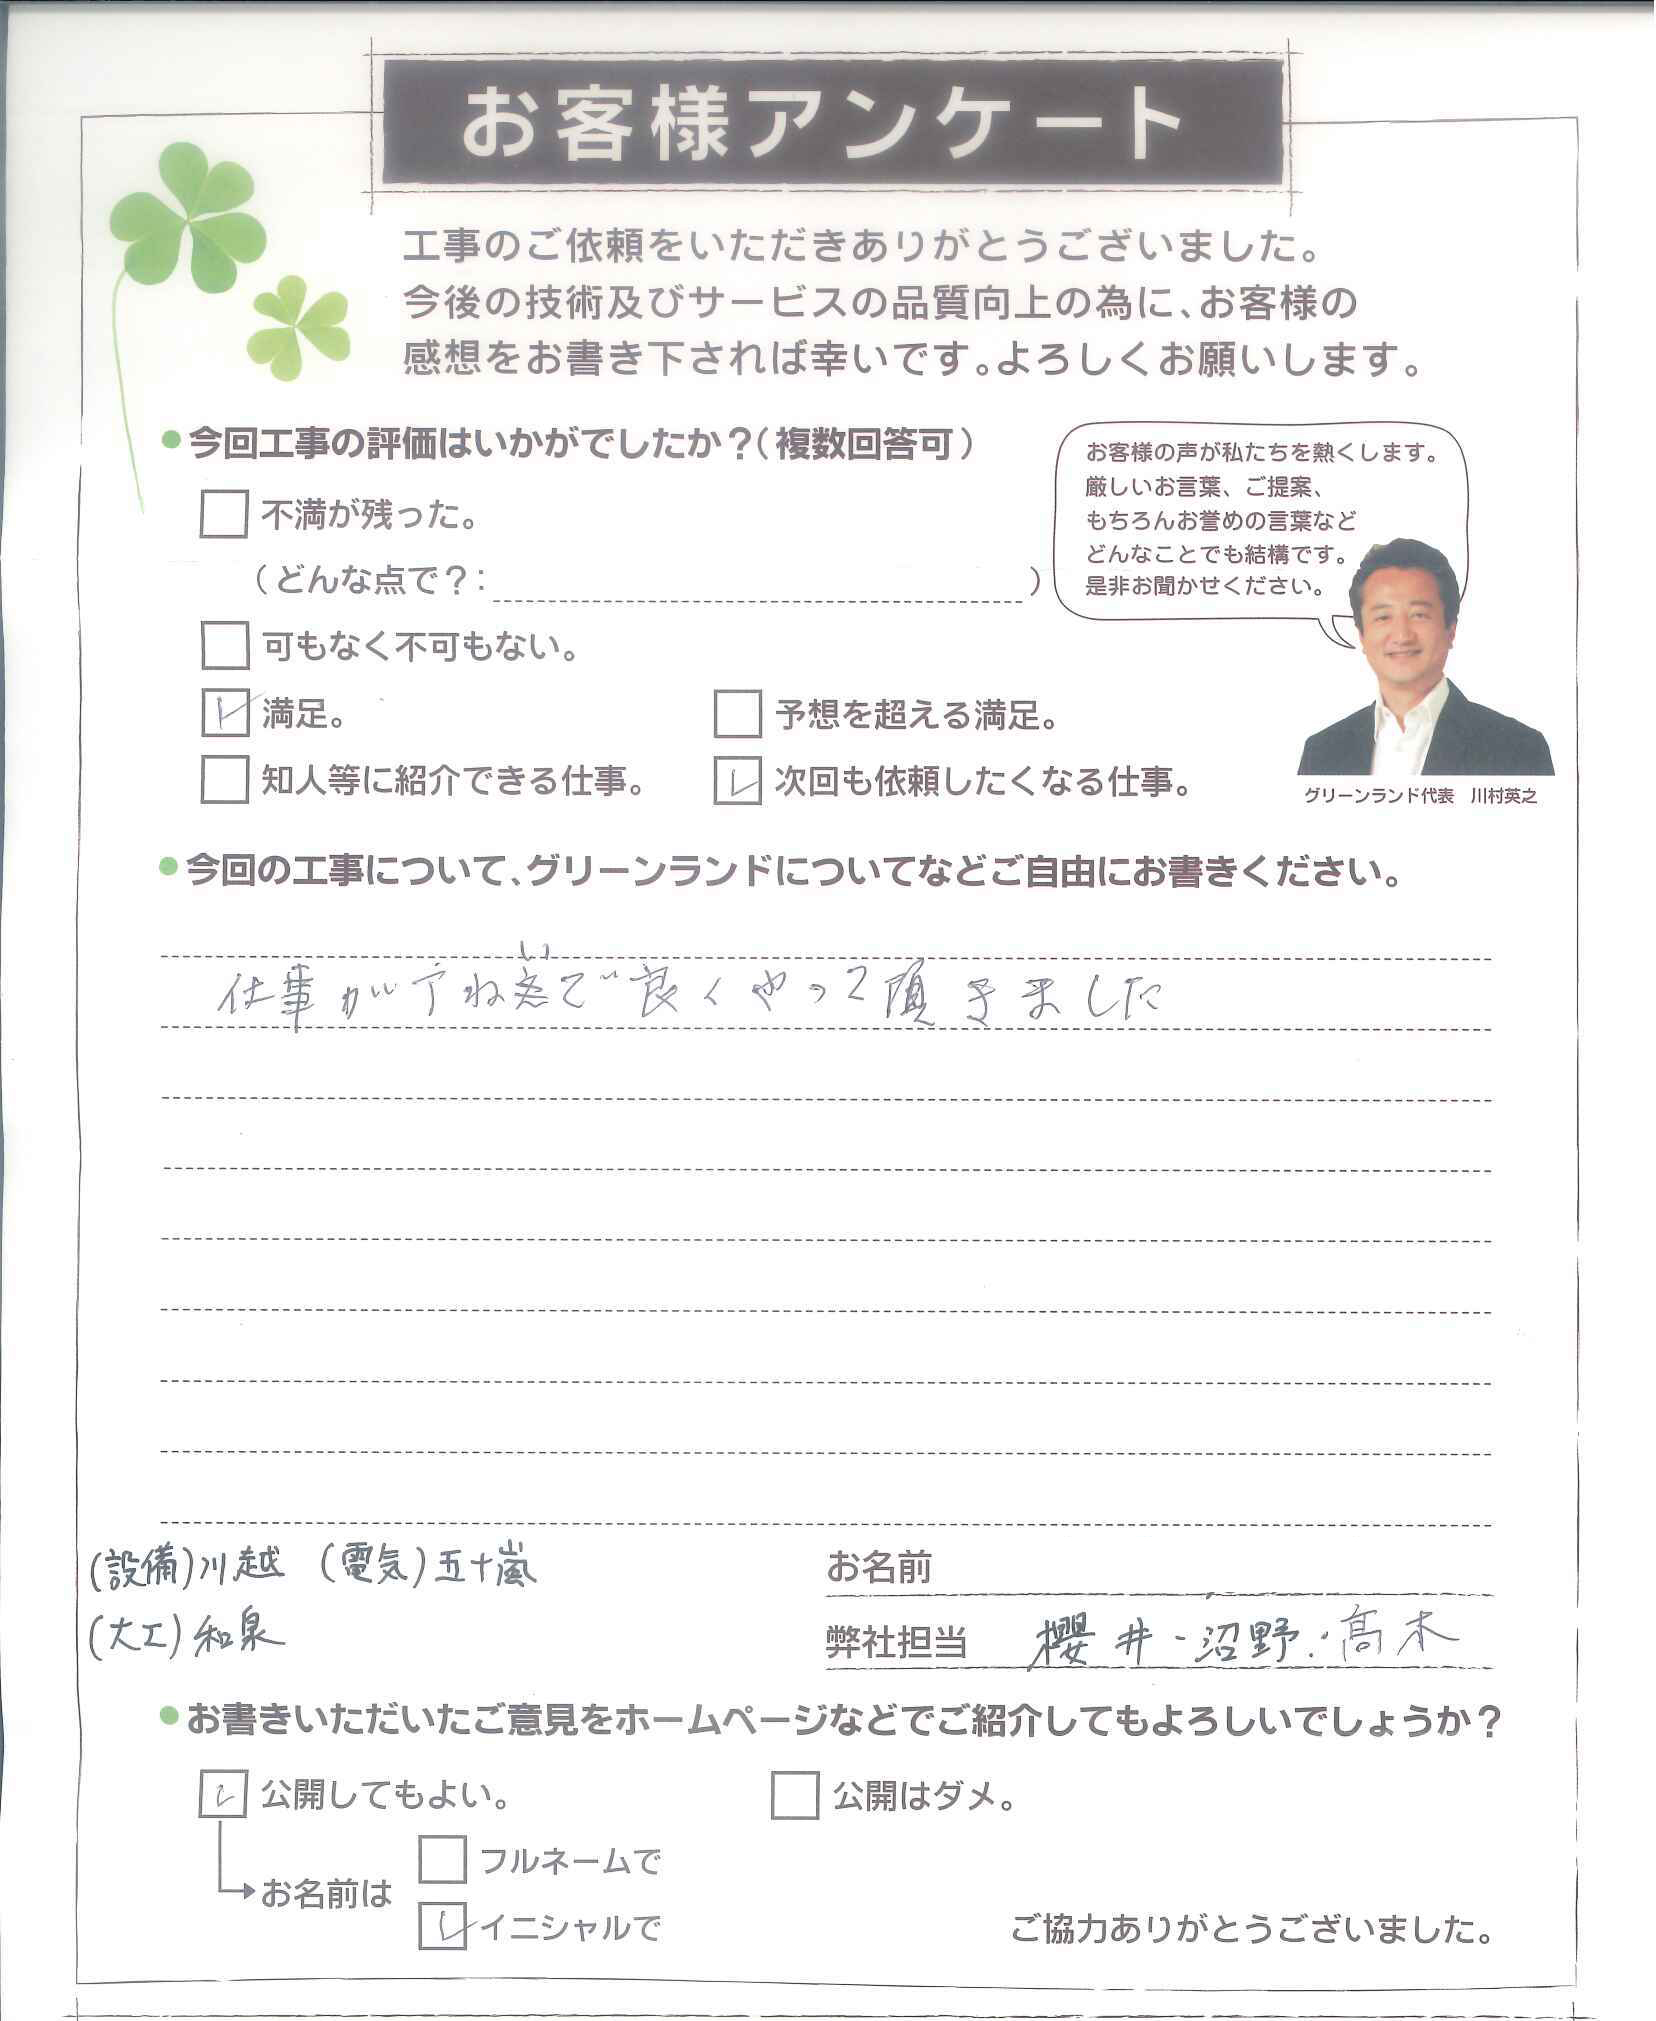 お客様アンケート
工事のご依頼をいただきありがとうございました。
今後の技術及びサービスの品質向上の為に、お客様の
感想をお書き下されば幸いです。よろしくお願いします。
●今回工事の評価はいかがでしたか？（複数回答可）
お客様の声が私たちを熱くします。
厳しいお言葉、ご提案、
もちろんお誉めの言葉など
どんなことでも結構です。
是非お聞かせください。
不満が残った。
（どんな点で？：）
可もなく不可もない。
満足。
予想を超える満足。
知人等に紹介できる仕事。
次回も依頼したくなる仕事。
グリーンランド代表 川村英之
●今回の工事について、グリーンランドについてなどご自由にお書きください。
仕事が てねいで良くやって頂きました
(設備)川越 (電気)五十嵐
(大工)和泉
お名前
弊社担当 櫻井・沼野・高木
●お書きいただいたご意見をホームページなどでご紹介してもよろしいでしょうか？
公開してもよい。
公開はダメ。
お名前は
フルネームで
イニシャルで
ご協力ありがとうございました。